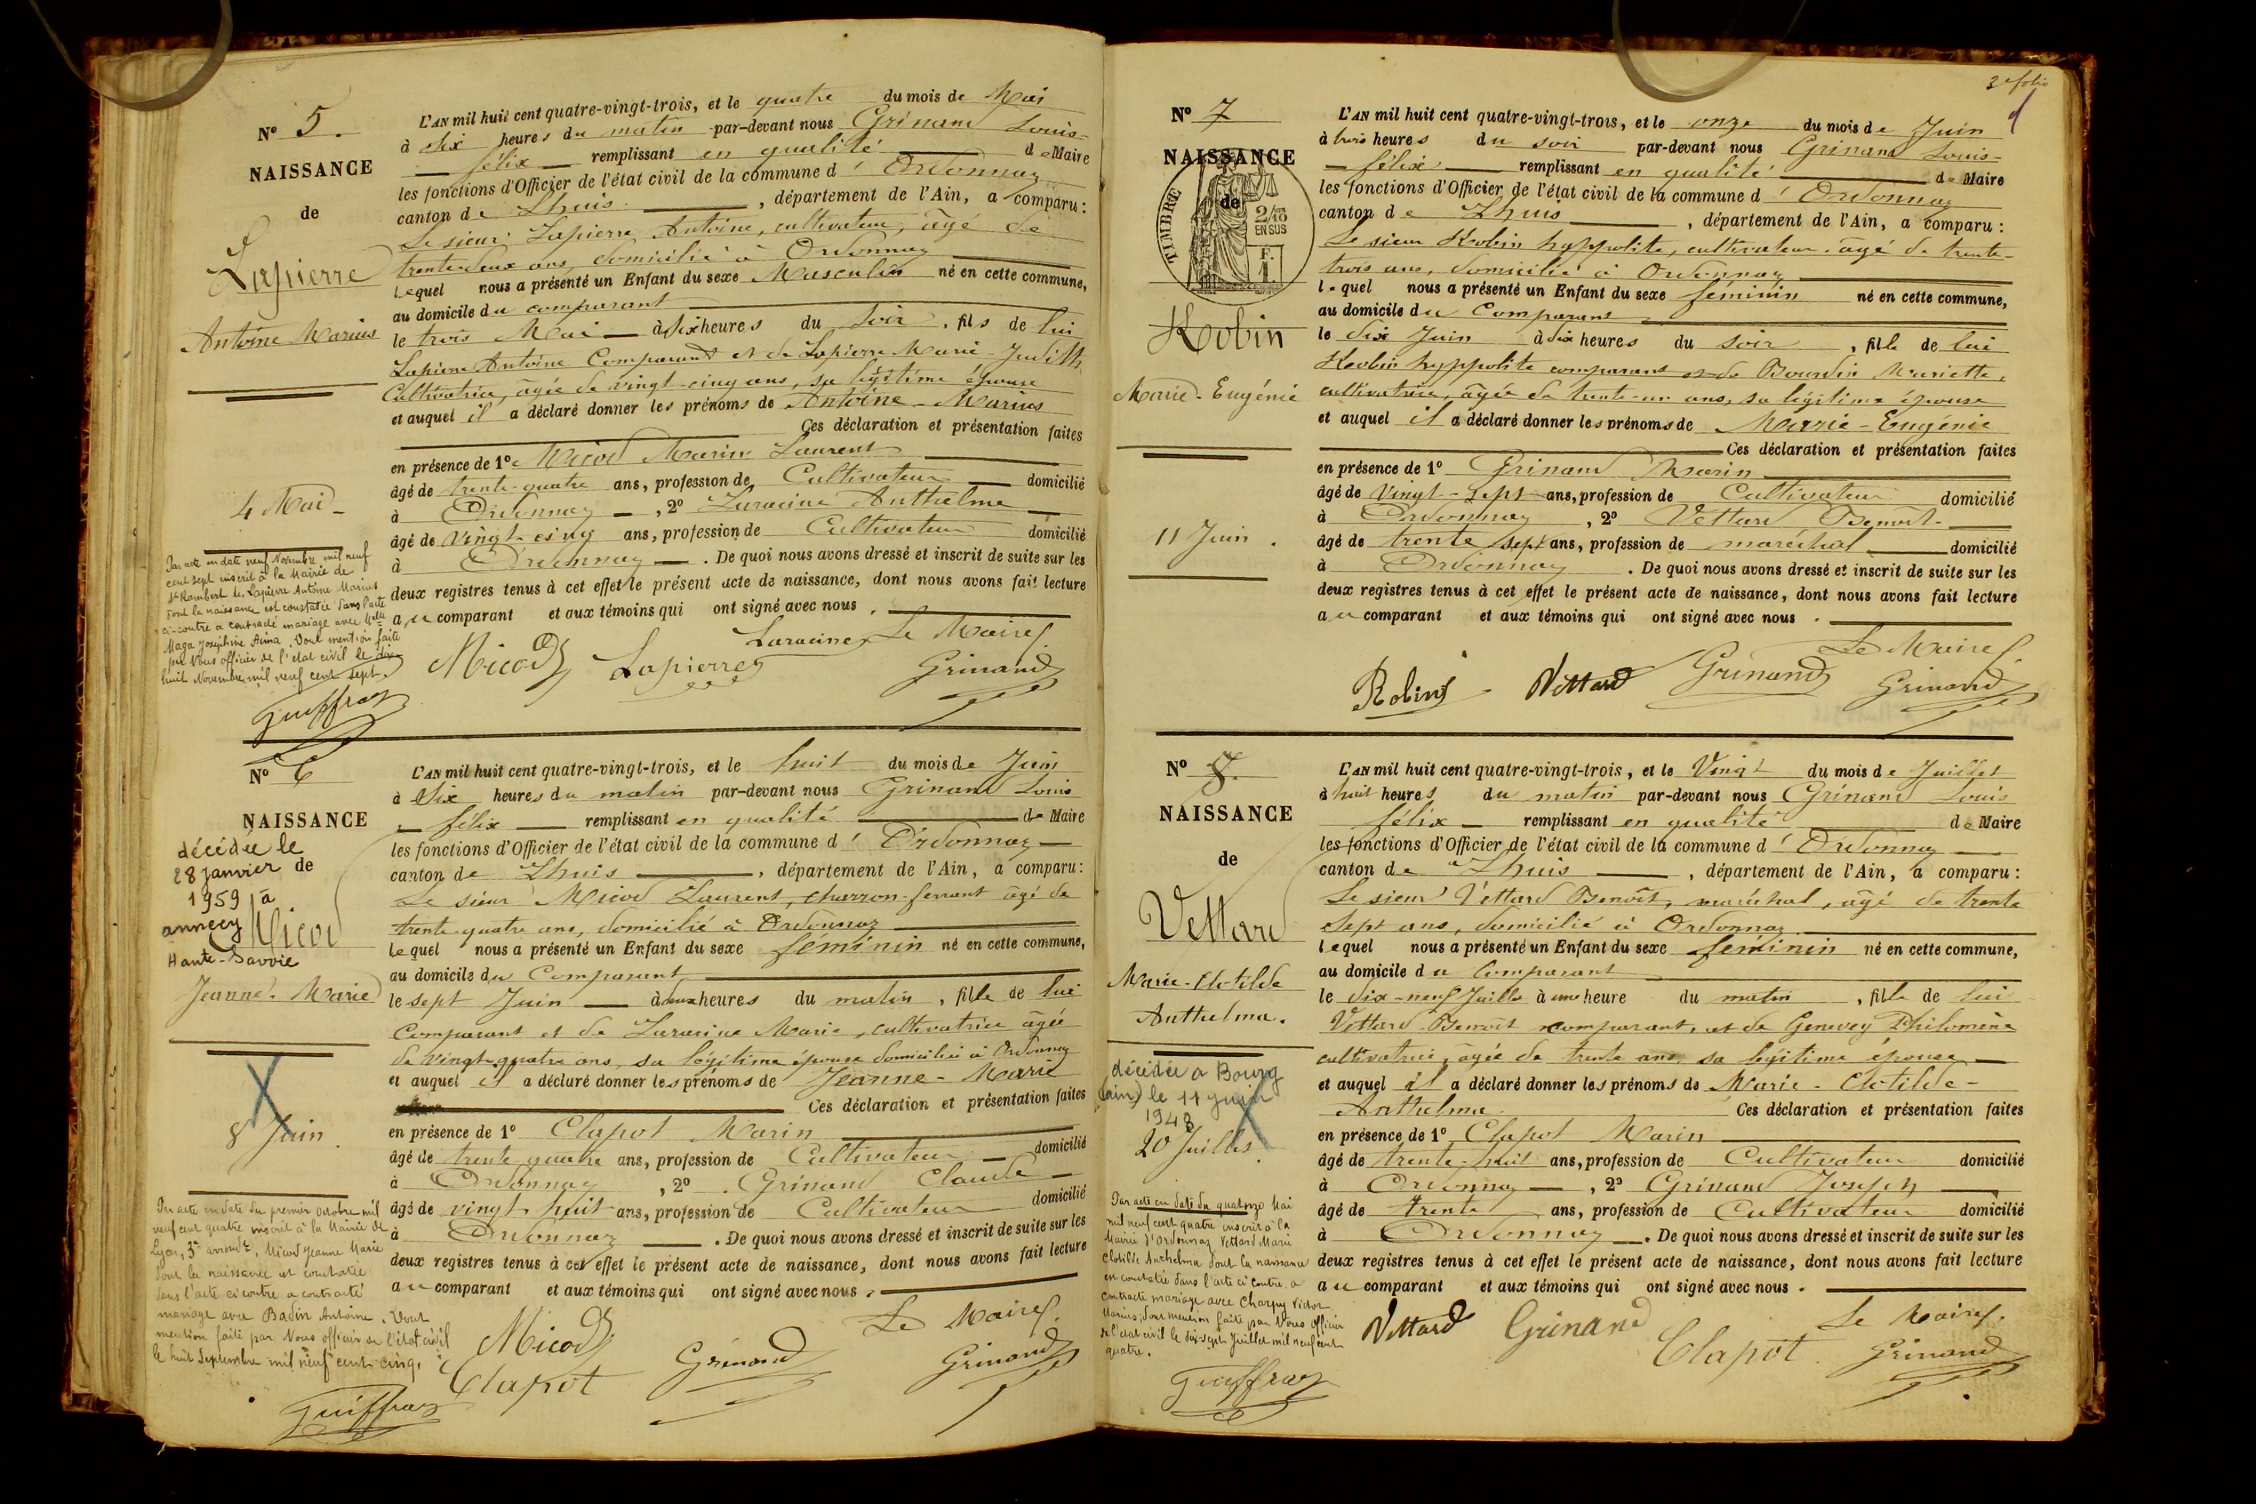 Nº 5.
NAISSANCE
de
Lapierre
Antoine Marius
4 Mai
Par acte en date neuf Novembre mil neuf
cent sept inscrit à la Mairie de
St Rambert de Lapierre Antoine Marius
dont la naissance est constatée dans l'acte
ci-contre a contracté mariage avec Melle
Maga Joséphine Anna. Dont mention faite
par Nous officier de l'état civil le dix-
huit Novembre mil neuf cent sept.
Guiffray
L'AN mil huit cent quatre-vingt-trois, et le quatre du mois de Mai
à six heures du matin par-devant nous Grinand Louis-
félix remplissant en qualité de Maire
les fonctions d'Officier de l'état civil de la commune d' Ordonnaz
canton de Lhuis, département de l'Ain, a comparu:
Le sieur Lapierre Antoine, cultivateur, âgé de
trente-deux ans, domicilié à Ordonnaz
lequel nous a présenté un Enfant du sexe Masculin né en cette commune,
au domicile du comparant
le trois Mai à six heures du soir, fils de lui
Lapierre Antoine Comparant et de Lapierre Marie-Judith,
Cultivatrice, âgée de vingt-cinq ans, sa légitime épouse
et auquel il a déclaré donner les prénoms de Antoine-Marius
Ces déclaration et présentation faites
en présence de 1º Micod Marin Laurent
âgé de trente-quatre ans, profession de Cultivateur domicilié
à Ordonnaz, 2º Laracine Anthelme
âgé de vingt-cinq ans, profession de Cultivateur domicilié
à Ordonnaz. De quoi nous avons dressé et inscrit de suite sur les
deux registres tenus à cet effet le présent acte de naissance, dont nous avons fait lecture
au comparant et aux témoins qui ont signé avec nous.
Micod Lapierre Laracine Le Maire
Grinand
Nº 6
NAISSANCE
de
décédée le
28 janvier
1959 à
annecy
Haute-Savoie
Micod
Jeanne-Marie
8 Juin
Par acte en date du premier octobre mil
neuf cent quatre inscrit à la Mairie de
Lyon, 3e arrondt, Micod Jeanne Marie
dont la naissance est constatée
dans l'acte ci contre a contracté
mariage avec Badin Antoine. Dont
mention faite par Nous officier de l'état civil
le huit Septembre mil neuf cent cinq.
Guiffray
L'AN mil huit cent quatre-vingt-trois, et le huit du mois de Juin
à six heures du matin par-devant nous Grinand Louis
félix remplissant en qualité de Maire
les fonctions d'Officier de l'état civil de la commune d' Ordonnaz
canton de Lhuis, département de l'Ain, a comparu:
Le sieur Micod Laurent, charron-ferrant âgé de
trente-quatre ans, domicilié à Ordonnaz
lequel nous a présenté un Enfant du sexe féminin né en cette commune,
au domicile du Comparant
le sept Juin à deux heures du matin, fille de lui
Comparant et de Laracine Marie, cultivatrice âgée
de vingt-quatre ans, sa légitime épouse domiciliée à Ordonnaz
et auquel il a déclaré donner les prénoms de Jeanne-Marie
Ces déclaration et présentation faites
en présence de 1º Clapot Marin
âgé de trente quatre ans, profession de Cultivateur domicilié
à Ordonnaz, 2º Grinand Claude
âgé de vingt-huit ans, profession de Cultivateur domicilié
à Ordonnaz. De quoi nous avons dressé et inscrit de suite sur les
deux registres tenus à cet effet le présent acte de naissance, dont nous avons fait lecture
au comparant et aux témoins qui ont signé avec nous.
Micod Le Maire
Clapot Grinand Grinand
2e folio
Nº 7
NAISSANCE
de
TIMBRE
2/10
EN SUS
F.
1
Robin
Marie-Eugénie
11 Juin.
L'AN mil huit cent quatre-vingt-trois, et le onze du mois de Juin
à trois heures du soir par-devant nous Grinand Louis-
félix remplissant en qualité de Maire
les fonctions d'Officier de l'état civil de la commune d' Ordonnaz
canton de Lhuis, département de l'Ain, a comparu:
Le sieur Robin hyppolite, cultivateur, âgé de trente-
trois ans, domicilié à Ordonnaz
lequel nous a présenté un Enfant du sexe féminin né en cette commune,
au domicile du Comparant
le dix Juin à dix heures du soir, fille de lui
Robin hyppolite comparant et de Bourdin Mariette,
cultivatrice, âgée de trente-un ans, sa légitime épouse
et auquel il a déclaré donner les prénoms de Marie-Eugénie
Ces déclaration et présentation faites
en présence de 1º Grinand Marin
âgé de vingt-sept ans, profession de Cultivateur domicilié
à Ordonnaz, 2º Vettard Benoît
âgé de trente sept ans, profession de maréchal domicilié
à Ordonnaz. De quoi nous avons dressé et inscrit de suite sur les
deux registres tenus à cet effet le présent acte de naissance, dont nous avons fait lecture
au comparant et aux témoins qui ont signé avec nous.
Robin Vettard Grinand Le Maire
Grinand
Nº 8.
NAISSANCE
de
Vettard
Marie-Clotilde
Anthelma.
décédée à Bourg
(ain) le 11 juin
1948
20 Juillet.
Par acte en date du quatorze Mai
mil neuf cent quatre inscrit à la
Mairie d'Ordonnaz Vettard Marie
Clotilde Anthelma dont la naissance
en constatée dans l'acte ci contre a
contracté mariage avec Charpy Victor
Marius, dont mention faite par Nous Officier
de l'état civil le dix-sept Juillet mil neuf cent
quatre.
Guiffray
L'AN mil huit cent quatre-vingt-trois, et le Vingt du mois de Juillet
à huit heures du matin par-devant nous Grinand Louis
félix remplissant en qualité de Maire
les fonctions d'Officier de l'état civil de la commune d' Ordonnaz
canton de Lhuis, département de l'Ain, a comparu:
Le sieur Vettard Benoît, maréchal, âgé de trente
sept ans, domicilié à Ordonnaz
lequel nous a présenté un Enfant du sexe féminin né en cette commune,
au domicile du Comparant
le dix-neuf Juillet à une heure du matin, fille de lui
Vettard Benoît comparant, et de Genevey Philomène
cultivatrice, âgée de trente ans, sa légitime épouse
et auquel il a déclaré donner les prénoms de Marie-Clotilde-
Anthelma Ces déclaration et présentation faites
en présence de 1º Clapot Marin
âgé de trente-huit ans, profession de Cultivateur domicilié
à Ordonnaz, 2º Grinand Joseph
âgé de trente ans, profession de Cultivateur domicilié
à Ordonnaz. De quoi nous avons dressé et inscrit de suite sur les
deux registres tenus à cet effet le présent acte de naissance, dont nous avons fait lecture
au comparant et aux témoins qui ont signé avec nous.
Vettard Grinand Clapot Le Maire
Grinand